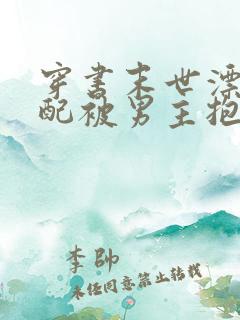 穿书末世漂
配被男主抱
李帅
未经同意禁止转载